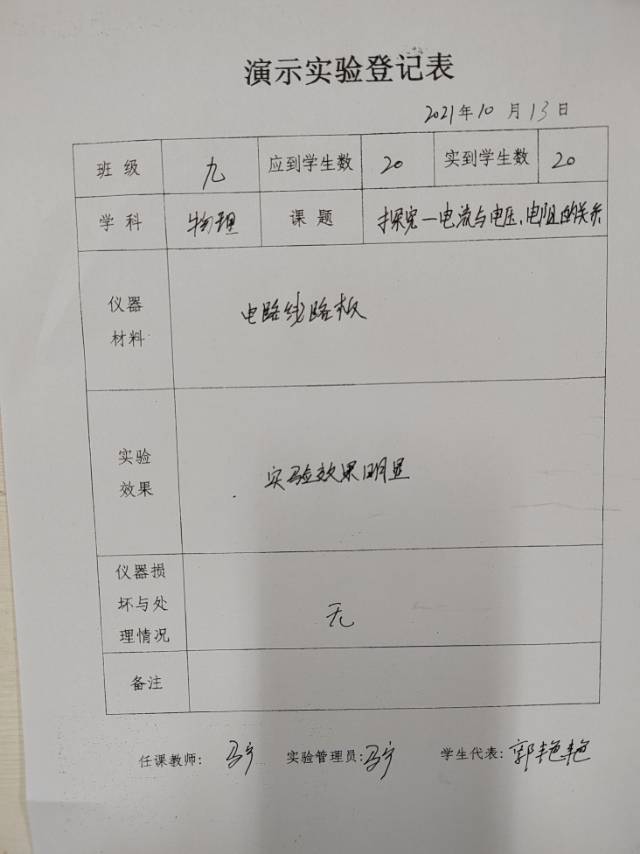 演示实验登记表
2021年10月13日
班级 九 应到学生数 20 实到学生数 20
学科 物理 课题 探究一电流与电压、电阻的关系
仪器
材料
电路线路板
实验
效果
实验效果明显
仪器损
坏与处
理情况
无
备注
任课教师：马宁 实验管理员：马宁 学生代表：郭艳艳